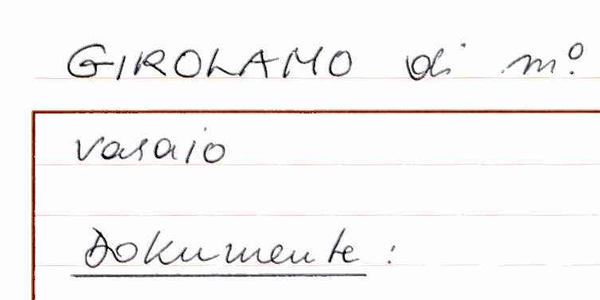 GIROLAMO di m.º
vasaio
Dokumente: